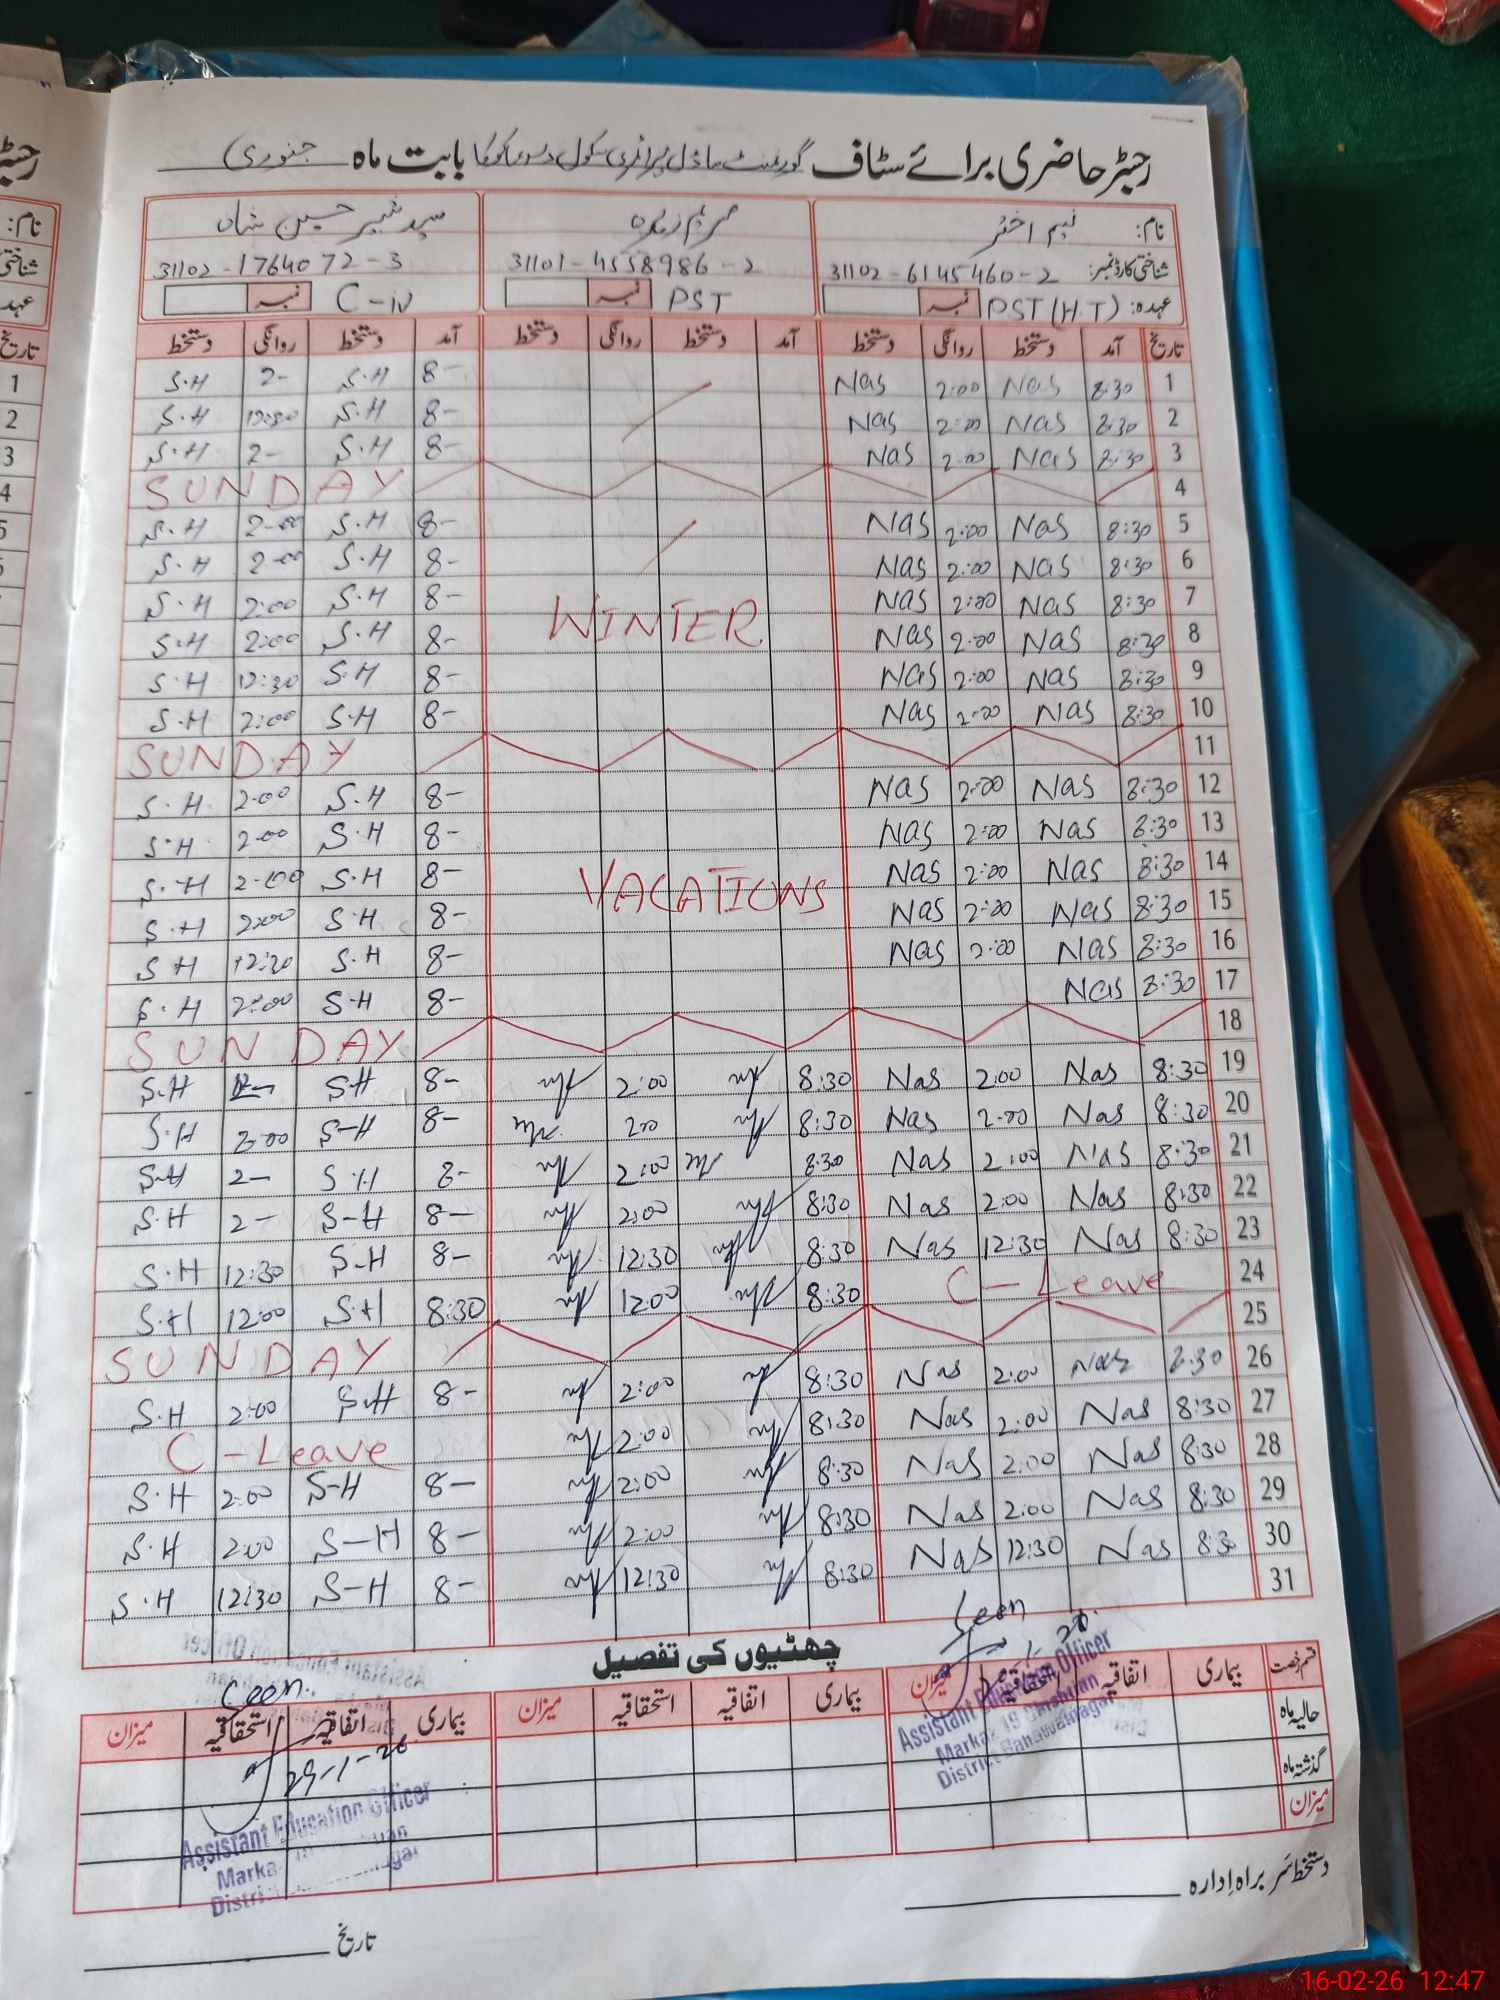 رجسٹر حاضری برائے سٹاف گورنمنٹ ماڈل پرائمری سکول بابت ماہ جنوری
نام: نسیم اختر مریم زہرہ سید شبیر حسین شاہ
شناختی کارڈ نمبر: 31102-6145460-2 31101-4558986-2 31102-1764072-3
عہدہ: PST (H.T) نمبر PST نمبر C-iv نمبر
تاریخ آمد دستخط روانگی دستخط آمد دستخط روانگی دستخط آمد دستخط روانگی دستخط
1 8:30 Nas 2:00 Nas 8- S.H 2- S.H
2 8:30 Nas 2:00 Nas 8- S.H 12:30 S.H
3 8:30 Nas 2:00 Nas 8- S.H 2- S.H
4 SUNDAY
5 8:30 Nas 2:00 Nas 8- S.H 2-00 S.H
6 8:30 Nas 2:00 Nas 8- S.H 2-00 S.H
7 8:30 Nas 2:00 Nas WINTER 8- S.H 2:00 S.H
8 8:30 Nas 2:00 Nas 8- S.H 2:00 S.H
9 8:30 Nas 2:00 Nas 8- S.H 12:30 S.H
10 8:30 Nas 2:00 Nas 8- S.H 2:00 S.H
11 SUNDAY
12 8:30 Nas 2:00 Nas 8- S.H 2-00 S.H
13 8:30 Nas 2:00 Nas 8- S.H 2-00 S.H
14 8:30 Nas 2:00 Nas VACATIONS 8- S.H 2-00 S.H
15 8:30 Nas 2:00 Nas 8- S.H 2:00 S.H
16 8:30 Nas 2:00 Nas 8- S.H 12:30 S.H
17 8:30 Nas 8- S-H 2:00 S.H
18 SUNDAY
19 8:30 Nas 2:00 Nas 8:30 2:00 8- S-H S.H
20 8:30 Nas 2-00 Nas 8:30 200 8- S-H 2-00 S.H
21 8:30 Nas 2:00 Nas 8:30 2:00 8- S.H 2- S-H
22 8:30 Nas 2:00 Nas 8:30 2:00 8- S-H 2- S.H
23 8:30 Nas 12:30 Nas 8:30 12:30 8- S-H 12:30 S.H
24 C-Leave 8:30 1200 8:30 S.H 12:00 S.H
25 SUNDAY
26 8:30 Nas 2:00 Nas 8:30 2:00 8- S.H 2:00 S.H
27 8:30 Nas 2:00 Nas 8:30 2:00 C-Leave
28 8:30 Nas 2:00 Nas 8:30 2:00 8- S-H 2:00 S.H
29 8:30 Nas 2:00 Nas 8:30 2:00 8- S-H 2:00 S.H
30 8:30 Nas 12:30 Nas 8:30 12:30 8- S-H 12:30 S.H
31
Seen
چھٹیوں کی تفصیل
قسم رخصت بیماری اتفاقیہ استحقاقیہ میزان بیماری اتفاقیہ استحقاقیہ میزان بیماری اتفاقیہ استحقاقیہ میزان
حالیہ ماہ
گذشتہ ماہ
میزان
Assistant Education Officer
Markaz
District Bahawalnagar
Seen
29-1-26
Assistant Education Officer
Marka
Distri
دستخط سربراہ ادارہ
تاریخ
رجسٹر
نام:
شناختی
عہد
تاریخ
1
2
3
4
5
16-02-26 12:47